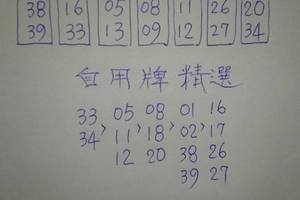 38 16 05 08 11 26 20
39 33 13 09 12 27 34
自用牌精選
33 05 08 01 16
34 > 11 > 18 > 02 > 17
12 20 38 26
39 27